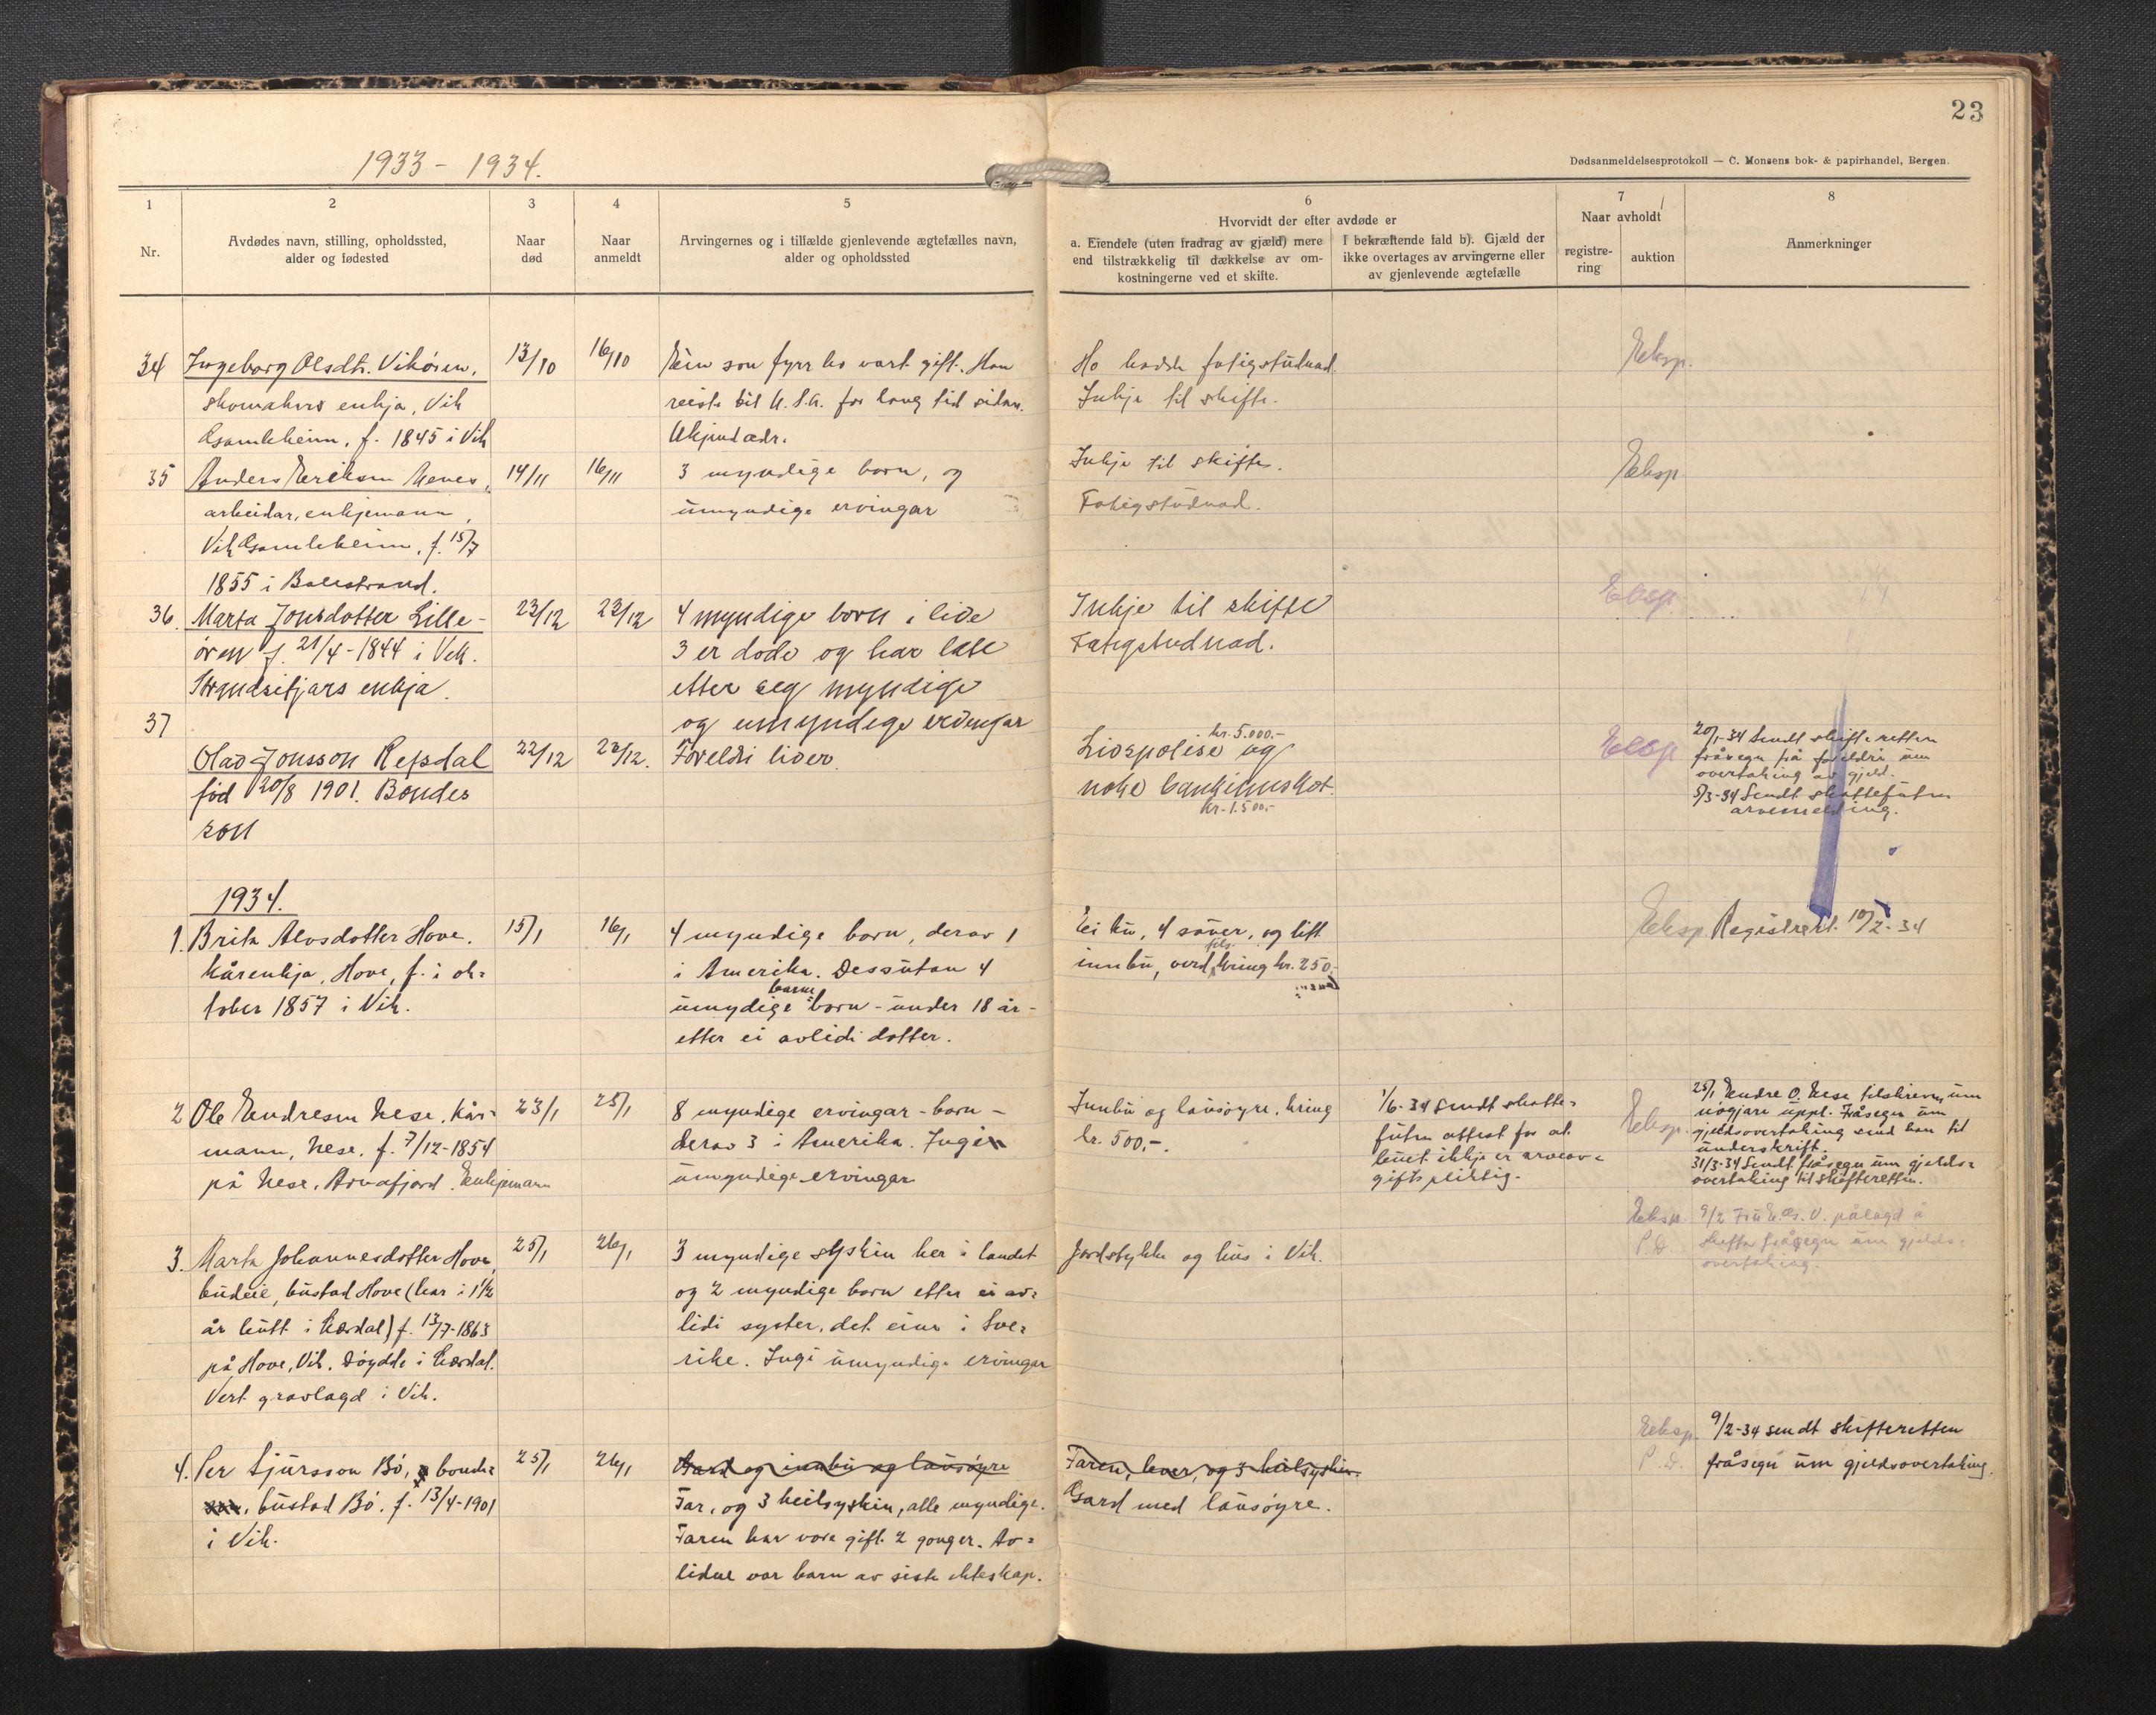 23
1933 - 1934.
Dødsanmeldelsesprotokoll — C. Monsens bok- & papirhandel, Bergen.
1 2 3 4 5 6 7 8
Nr.
Avdødes navn, stilling, opholdssted,
alder og fødested
Naar
død
Naar
anmeldt
Arvingernes og i tilfælde gjenlevende ægtefælles navn,
alder og opholdssted
Hvorvidt der efter avdøde er
a. Eiendele (uten fradrag av gjæld) mere
end tilstrækkelig til dækkelse av om-
kostningerne ved et skifte.
I bekræftende fald b). Gjæld der
ikke overtages av arvingerne eller
av gjenlevende ægtefælle
Naar avholdt
registre-
ring
auktion
Anmerkninger
34 Ingeborg Olsdtr. Vikøren,
skomakers enkja, Vik
Gamleheim, f. 1845 i Vik
13/10
16/10
Ein son fyrr ho vart gift. Han
reiste til U.S.A. for lang tid sidan.
Ukjend adr.
Ho hadde fatigstudnad.
Inkje til skifte.
Eksp.
35 Anders Erikson Nenes,
arbeidar, enkjemann,
Vik Gamleheim, f. 15/7
1855 i Balestrand.
14/11
16/11
3 myndige born, og
umyndige ervingar
Inkje til skifte.
Fatigstudnad.
Eksp.
36. Marta Jonsdotter Lille-
øren f. 21/4-1844 i Vik.
Strandsitjars enkja.
23/12
23/12
4 myndige born i live
3 er døde og har late
etter seg myndige
og umyndige ervingar
Inkje til skifte
Fatigstudnad.
Eksp.
37
Olav Jonsson Refsdal
fød 20/8 1901. Bondes
son
22/12
23/12.
Foreldri liver.
kr. 5.000.-
Livspolise og
noko bankinnskot.
kr. 1.500,-
Eksp
20/1-34 Sendt skifteretten
fråsegn frå foreldri um
overtaking av gjeld.
5/3-34 Sendt skattefuten
arvemelding.
1934.
1. Brita Alvsdotter Hove.
kårenkja, Hove, f. i ok=
tober 1857 i Vik.
15/1
16/1
4 myndige born, derav 1
i Amerika. Dessutan 4
barne
umydige born - under 18 år -
etter ei avlidi dotter.
Ei ku, 4 søver, og litt
innbu, verd kring kr. 250.-
Eksp. Registrert 10/2-34
2 Ole Endreson Nese, kår-
mann, Nese, f. 7/12-1854
på Nese, Arnafjord. Enkjemann
23/1
25/1
8 myndige ervingar - born -
derav 3 i Amerika. Ingen
umyndige ervingar
Innbu og lausøyre, kring
kr. 500,-.
1/6-34 sendt skatte=
futen attest for at
buet ikkje er arveav=
giftspliktig.
Eksp.
25/1 Endre O. Nese tilskreven um
uogjare uppl. Fråsegn um
gjeldsovertaking send han til
underskrift.
31/3-34 Sendt fråsegn um gjelds=
overtaking til skifteretten.
3. Marta Johannesdotter Hove,
budeie, bustad Hove (har i 1 1/2
år butt i Lærdal) f. 13/7-1863
på Hove, Vik. Døydde i Lærdal.
Vert gravlagd i Vik.
25/1
26/1
3 myndige syskin her i landet
og 2 myndige born etter ei av=
lidi syster, det eine i Sve=
rike. Ingi umyndige ervingar
Jordstykke og hus i Vik.
Eksp.
P.D.
overtaking.
4. Per Sjursson Bø, bonde
bustad Bø. f. 13/4-1901
i Vik.
25/1
26/1
Gard og innbu og lausøyre
Far, og 3 heilsyskin, alle myndige.
Faren har vore gift 2 gonger. Av=
lidne var barn av siste ekteskap.
Faren, lever, og 3 heilsyskin.
Gard med lausøyre.
Eksp.
P.D.
9/2-34 sendt skifteretten
fråsegn um gjeldsovertaking.